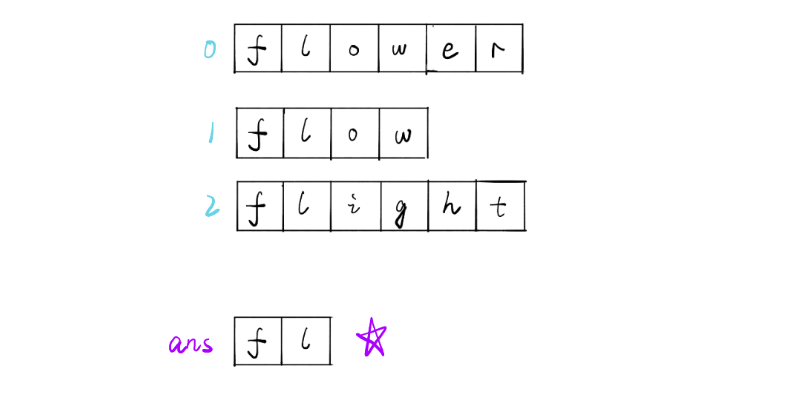 0 f l o w e r
1 f l o w
2 f l i g h t
ans f l